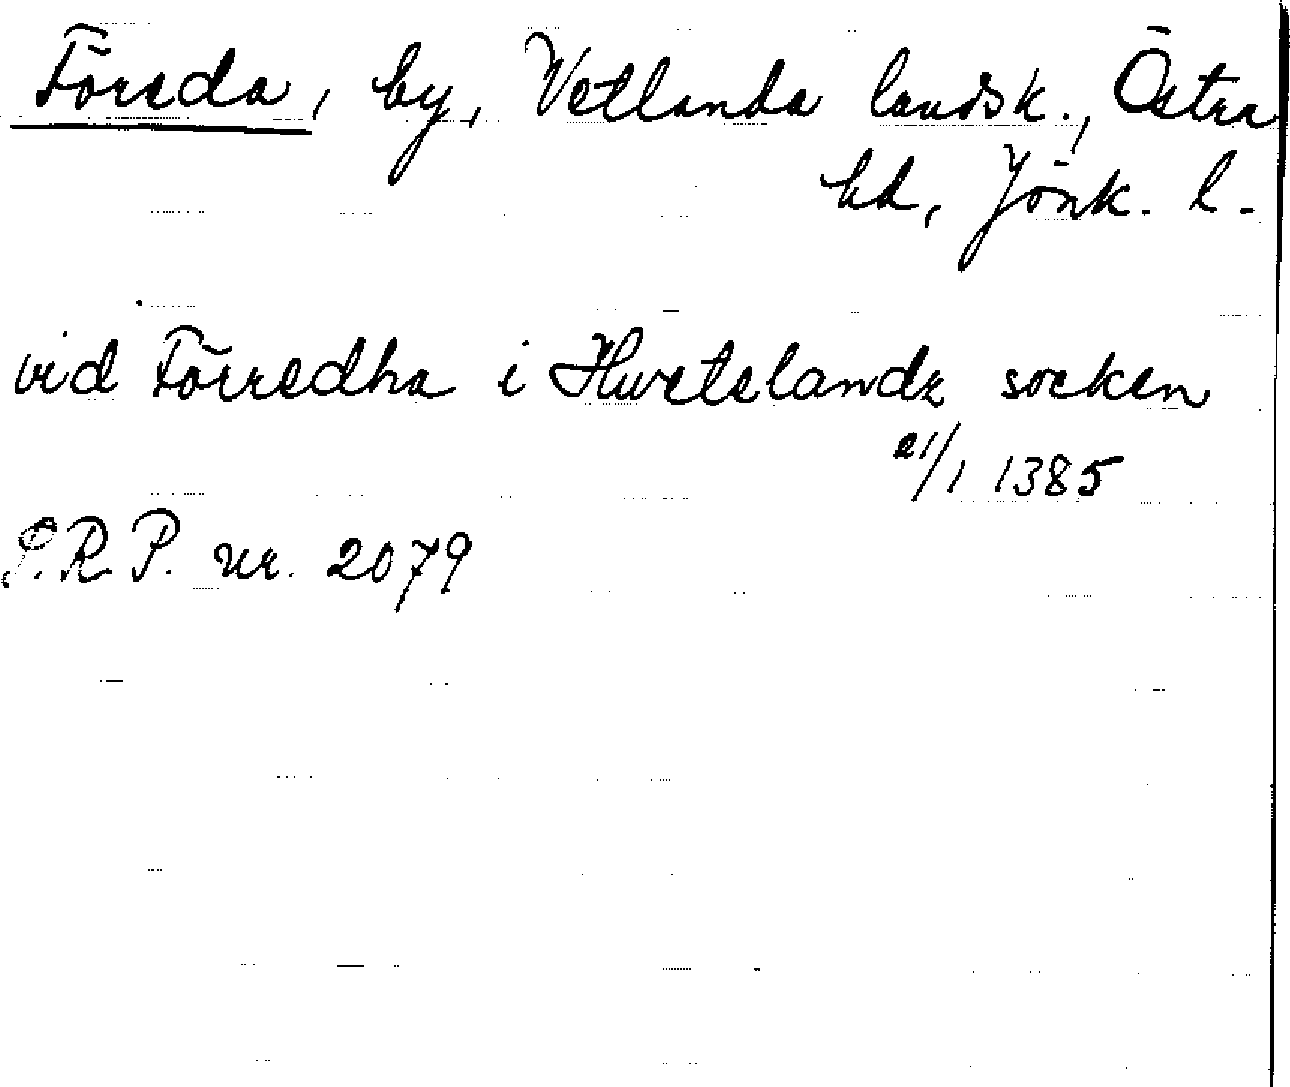 Föreda, by, Vetlanda landsk., Östra
hd, Jönk. l.
vid Förredha i Hwetslandz socken
21/1 1385
S.R.P. nr. 2079